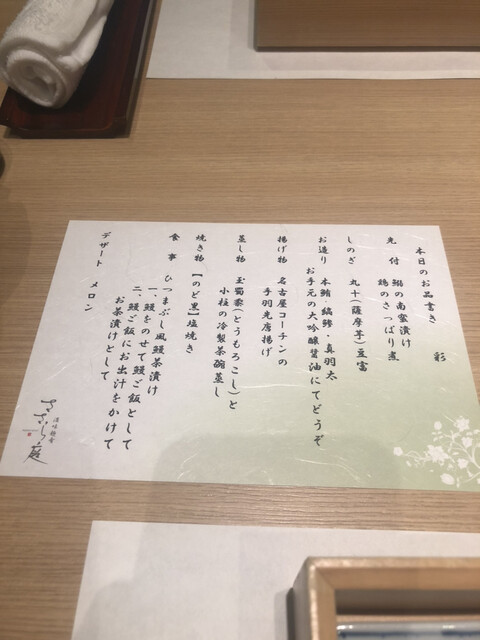 本日のお品書き　彩
先　付　鰯の南蛮漬け
鶏のさっぱり煮
しのぎ　丸十(薩摩芋)豆富
お造り　本鮪・縞鯵・真羽太
お手元の大吟醸醤油にてどうぞ
揚げ物　名古屋コーチンの
手羽先唐揚げ
蒸し物　玉蜀黍(とうもろこし)と
小柱の冷製茶碗蒸し
焼き物　【のど黒】塩焼き
食　事　ひつまぶし風鰻茶漬け
一、鰻をのせて鰻ご飯として
二、鰻ご飯にお出汁をかけて
お茶漬けとして
デザート　メロン